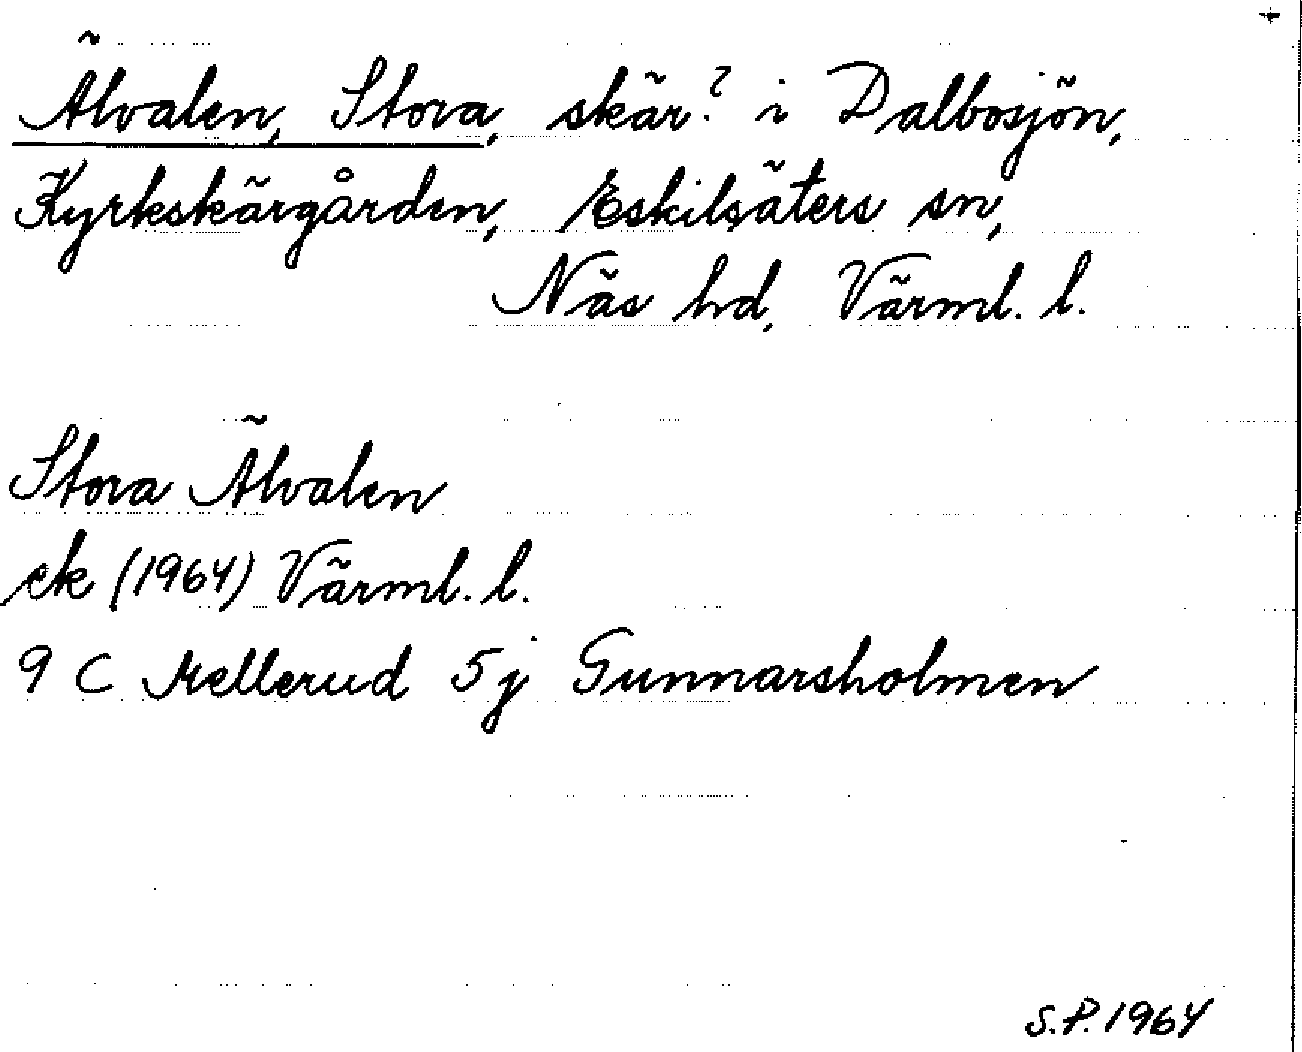 Älvalen, Stora, skär? i Dalbosjön,
Kyrkskärgården, Eskilsäters sn,
Näs hd, Värml. l.
Stora Älvalen
ek (1964) Värml. l.
9 C Mellerud 5j Gunnarsholmen
S.P. 1964